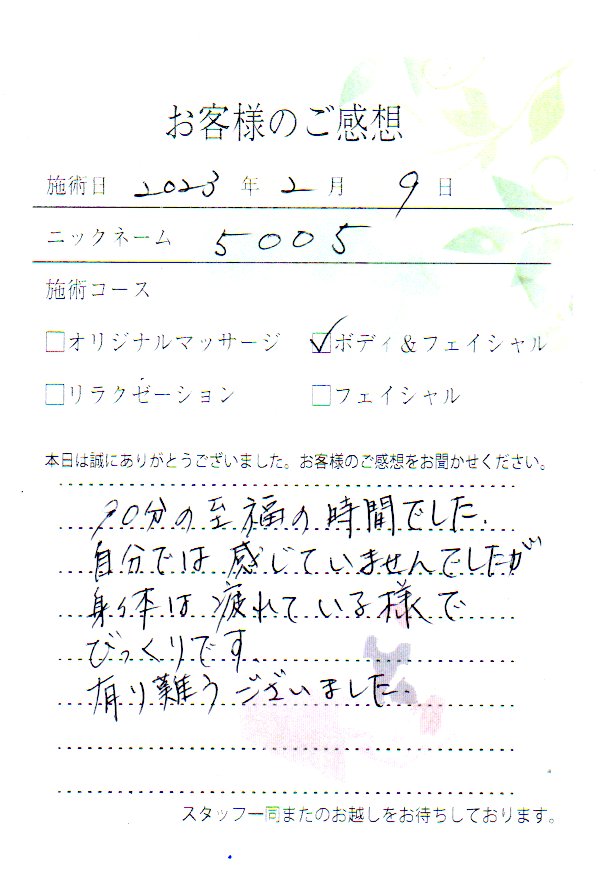 お客様のご感想
施術日 2023 年 2 月 9 日
ニックネーム 5005
施術コース
□オリジナルマッサージ ☑ボディ&フェイシャル
□リラクゼーション □フェイシャル
本日は誠にありがとうございました。お客様のご感想をお聞かせください。
90分の至福の時間でした.
自分では感じていませんでしたが
身体は疲れている様で
びっくりです.
有り難うございました.
スタッフ一同またのお越しをお待ちしております。